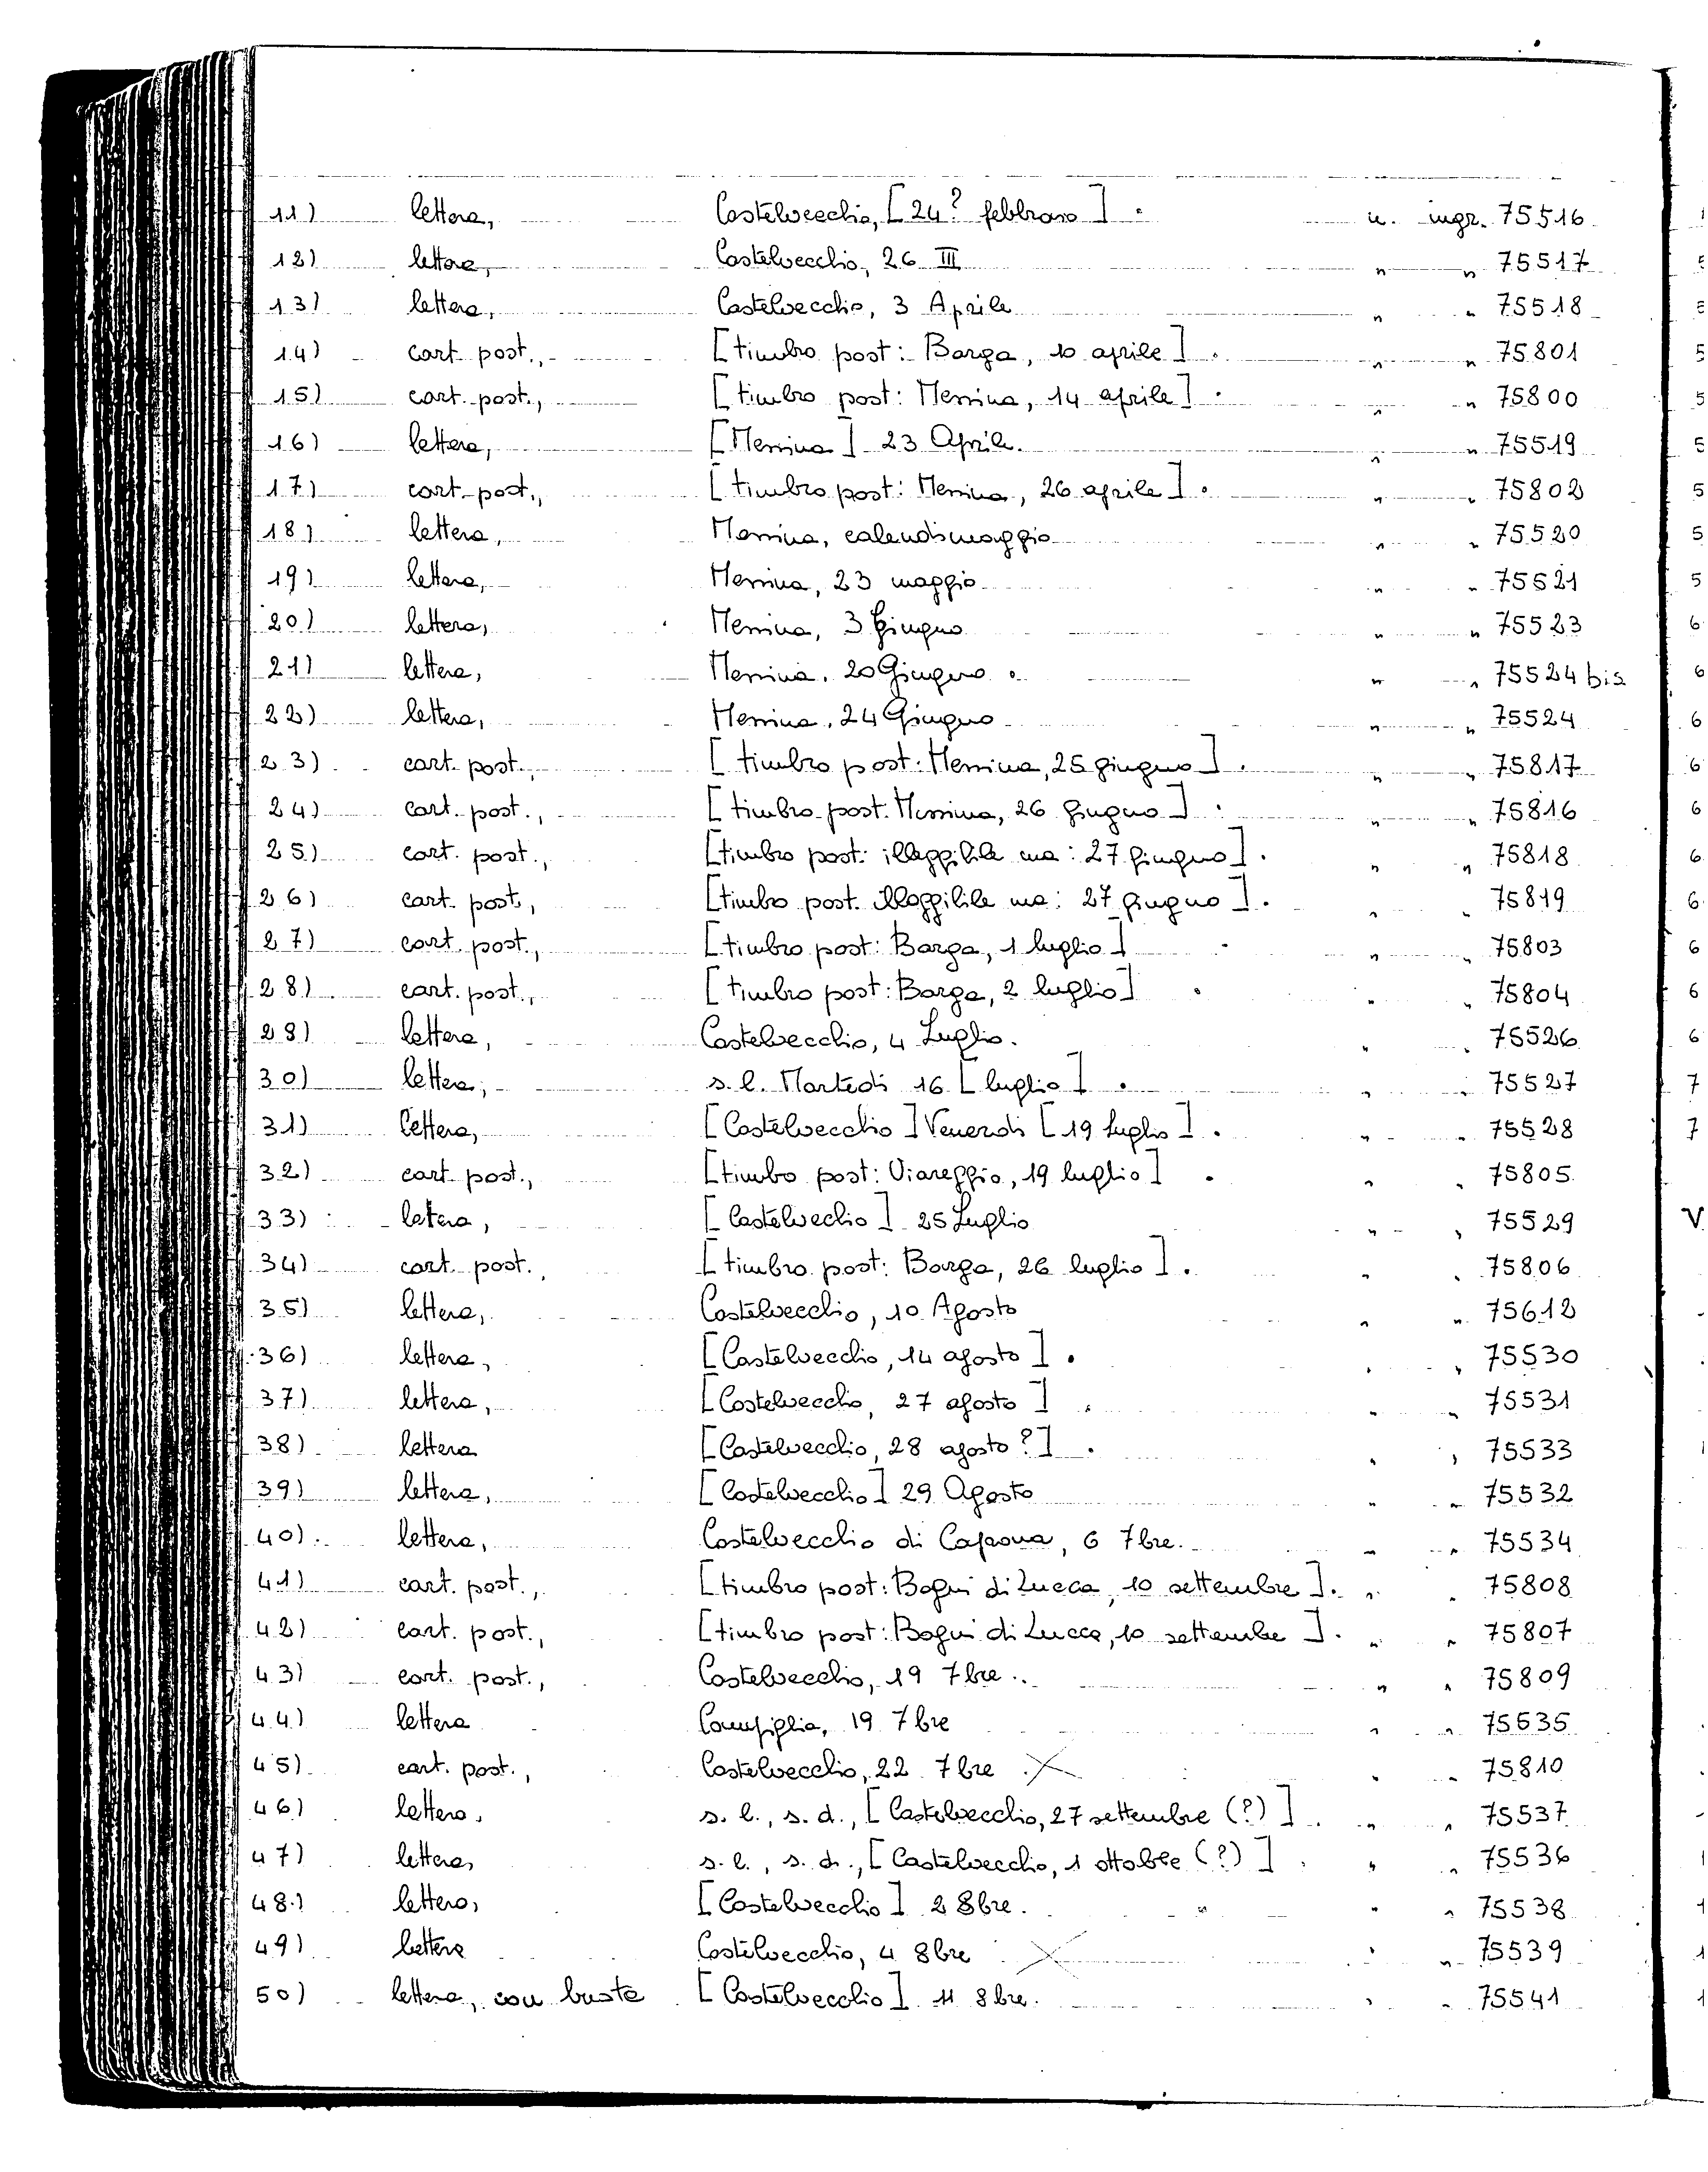 11) lettera, Castelvecchio, [24? febbraio]. n. ingr. 75516
12) lettera, Castelvecchio, 26 III " " 75517
13) lettera, Castelvecchio, 3 Aprile " " 75518
14) cart. post., [timbro post: Barga, 10 aprile]. " " 75801
15) cart. post., [timbro post: Messina, 14 aprile]. " " 75800
16) lettera, [Messina] 23 Aprile. " " 75519
17) cart. post., [timbro post: Messina, 26 aprile]. " " 75802
18) lettera, Messina, calendimaggio " " 75520
19) lettera, Messina, 23 maggio " " 75521
20) lettera, Messina, 3 Giugno " " 75523
21) lettera, Messina, 20 Giugno. " " 75524 bis
22) lettera, Messina, 24 Giugno " " 75524
23) cart. post., [timbro post: Messina, 25 giugno]. " " 75817
24) cart. post., [timbro post. Messina, 26 giugno]. " " 75816
25) cart. post., [timbro post: illeggibile ma: 27 giugno]. " " 75818
26) cart. post., [timbro post. illeggibile ma: 27 giugno]. " " 75819
27) cart. post., [timbro post: Barga, 1 luglio]. " " 75803
28) cart. post., [timbro post: Barga, 2 luglio]. " " 75804
29) lettera, Castelvecchio, 4 Luglio. " " 75526
30) lettera, s.l. Martedì 16 [luglio]. " " 75527
31) lettera, [Castelvecchio] Venerdì [19 luglio]. " " 75528
32) cart. post., [timbo post: Viareggio, 19 luglio]. " " 75805
33) letera, [Castelvechio] 25 Luglio " " 75529
34) cart. post., [timbro post: Barga, 26 luglio]. " " 75806
35) lettera, Castelvecchio, 10 Agosto " " 75612
36) lettera, [Castelvecchio, 14 agosto]. " " 75530
37) lettera, [Castelvecchio, 27 agosto]. " " 75531
38) lettera [Castelvecchio, 28 agosto?]. " " 75533
39) lettera, [Castelvecchio] 29 Agosto " " 75532
40) lettera, Castelvecchio di Caprona, 6 7bre. " " 75534
41) cart. post., [timbro post: Bagni di Lucca, 10 settembre]. " " 75808
42) cart. post., [timbro post: Bagni di Lucca, 10 settembre]. " " 75807
43) cart. post., Castelvecchio, 19 7bre. " " 75809
44) lettera 19 7bre " " 75535
45) cart. post., Castelvecchio, 22 7bre " " 75810
46) lettera, s.l., s.d., [Castelvecchio, 27 settembre (?)]. " " 75537
47) lettera, s.l., s.d., [Castelvecchio, 1 ottobre (?)]. " " 75536
48) lettera, [Castelvecchio] 2 8bre. " " " 75538
49) lettera Castelvecchio, 4 8bre " " 75539
50) lettera, con busta [Castelvecchio] 11 8bre. " " 75541